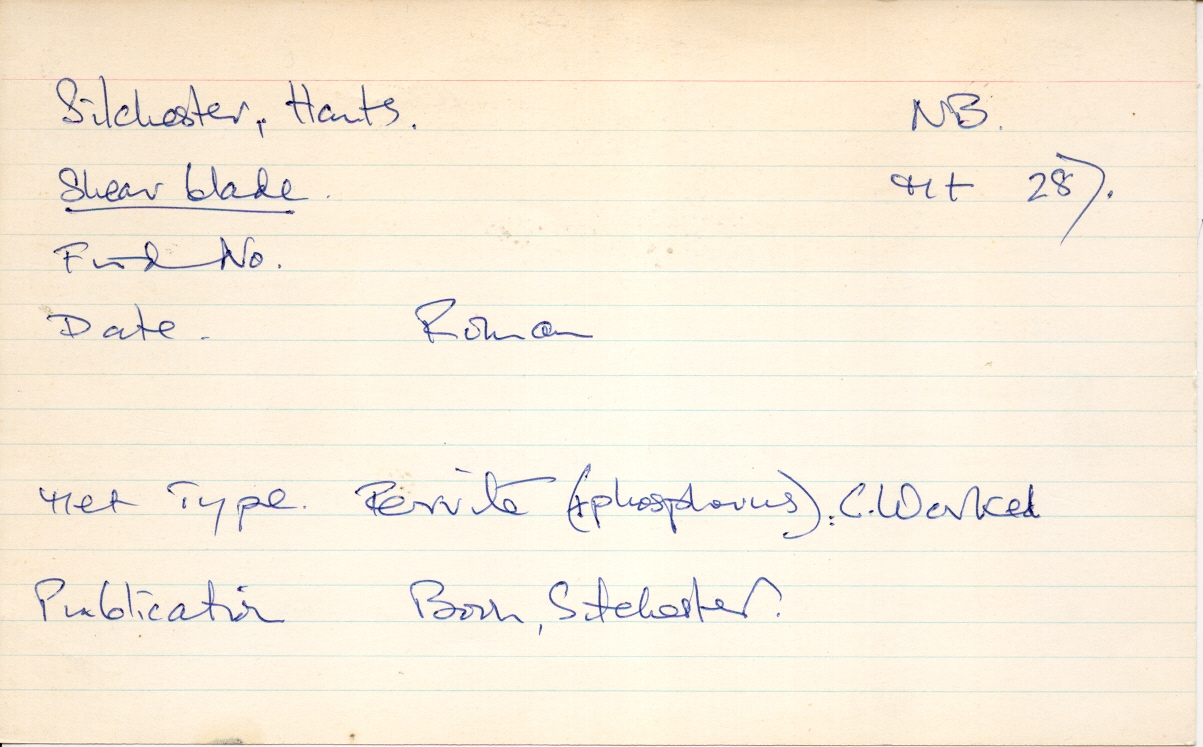 Silchester, Hants. NB.
Shear blade. Ht 287.
Find No.
Date. Roman
Met Type. Ferrite (+phosphorus); C.Worked
Publication Boon, Silchester.